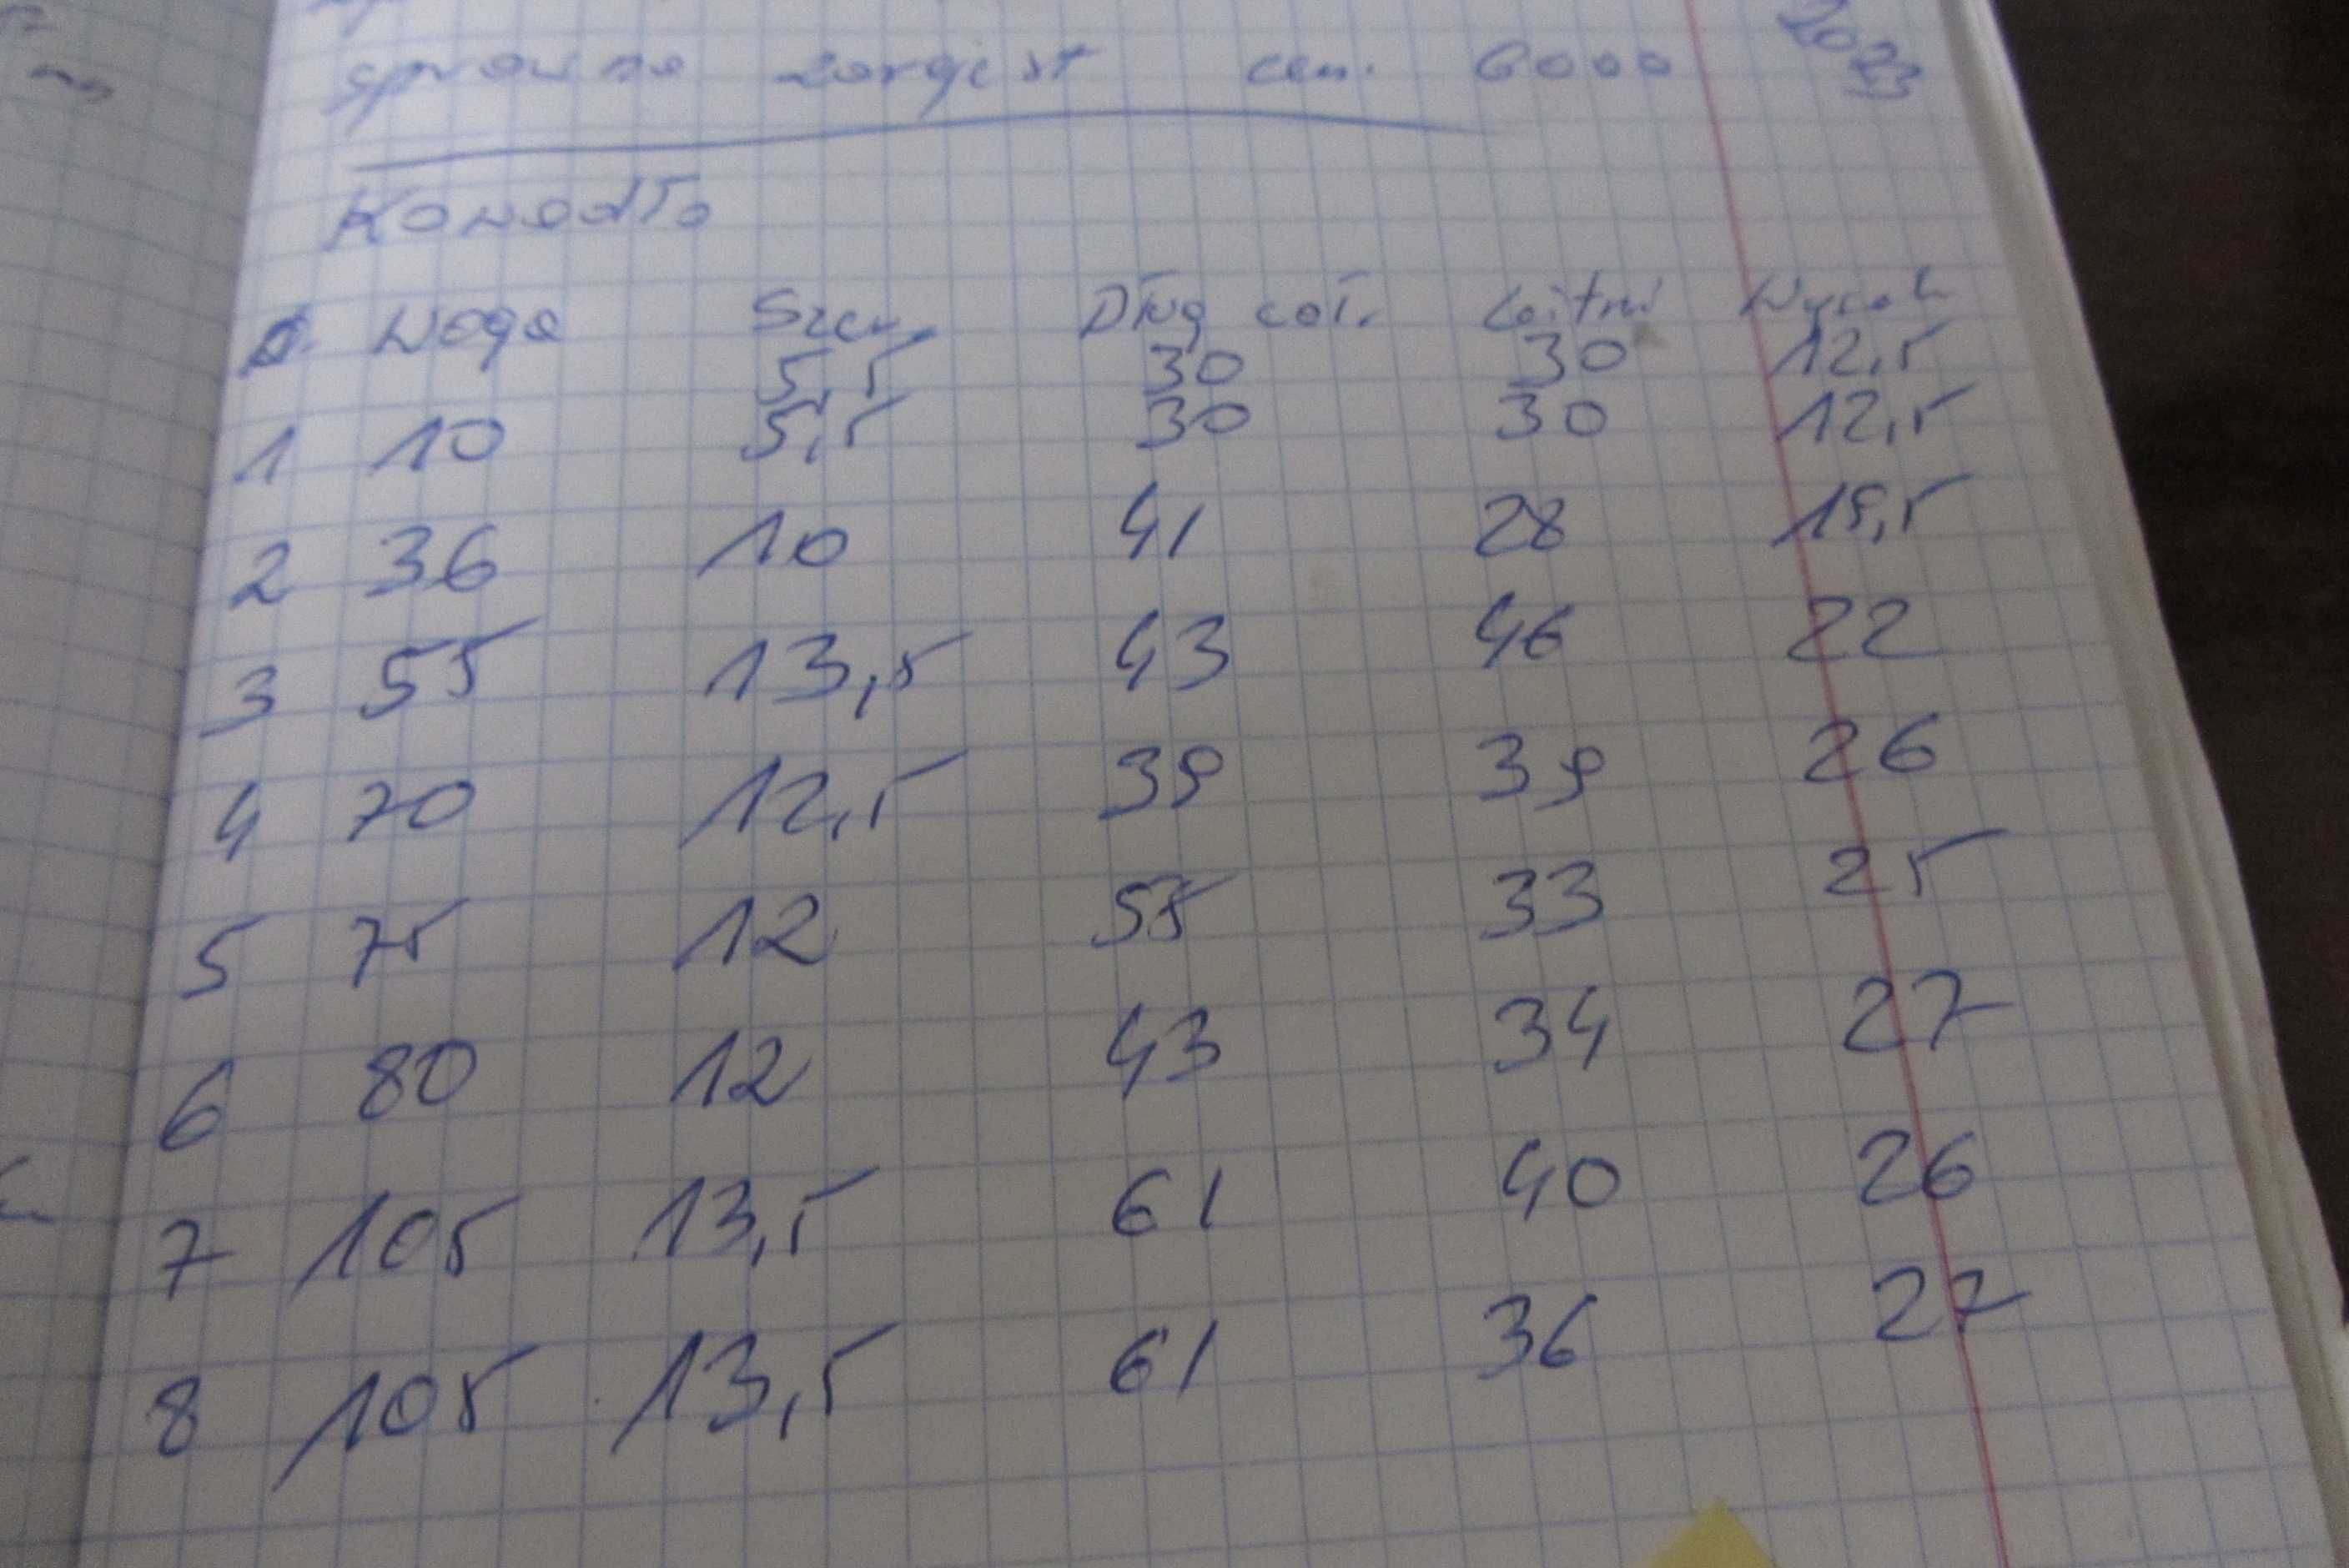 sprawna zarejest cen. 6000 2023
Kowadło
Waga Szer. Dług cał. Wysok
5,5 30 30 12,5
1 10 5,5 30 30 12,5
2 36 10 41 28 19,5
3 55 13,5 43 46 22
4 70 12,5 39 39 26
5 75 12 55 33 25
6 80 12 43 34 27
7 105 13,5 61 40 26
8 105 13,5 61 36 27